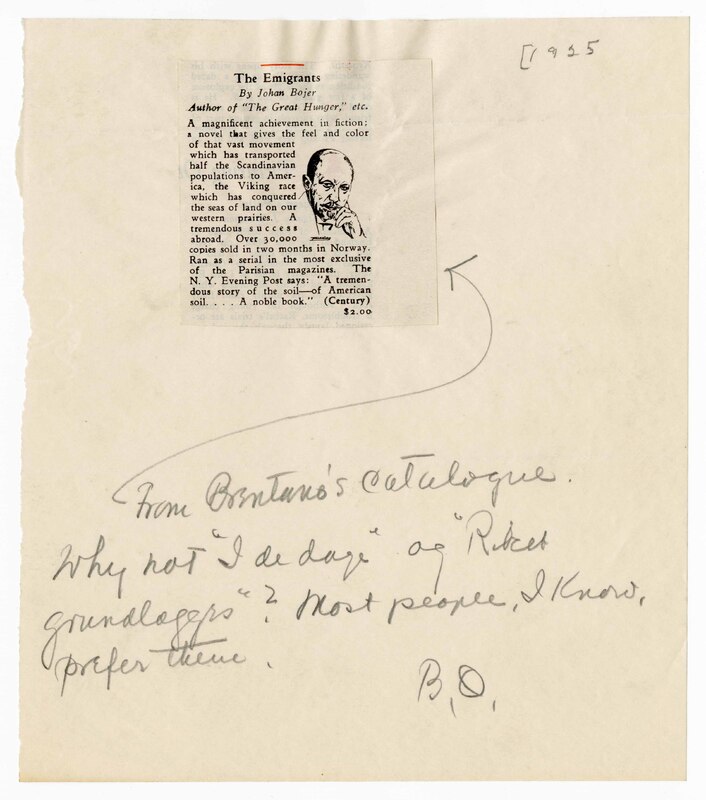 [1925
The Emigrants
By Johan Bojer
Author of "The Great Hunger," etc.
A magnificent achievement in fiction;
a novel that gives the feel and color
of that vast movement
which has transported
half the Scandinavian
populations to Amer-
ica, the Viking race
which has conquered
the seas of land on our
western prairies. A
tremendous success
abroad. Over 30,000
copies sold in two months in Norway.
Ran as a serial in the most exclusive
of the Parisian magazines. The
N. Y. Evening Post says: "A tremen-
dous story of the soil—of American
soil. . . . A noble book." (Century)
$2.00
From Brentano's Catalogue.
Why not "I de dage" og "Riket
grundlægges"? Most people, I know,
prefer them.
B.O.